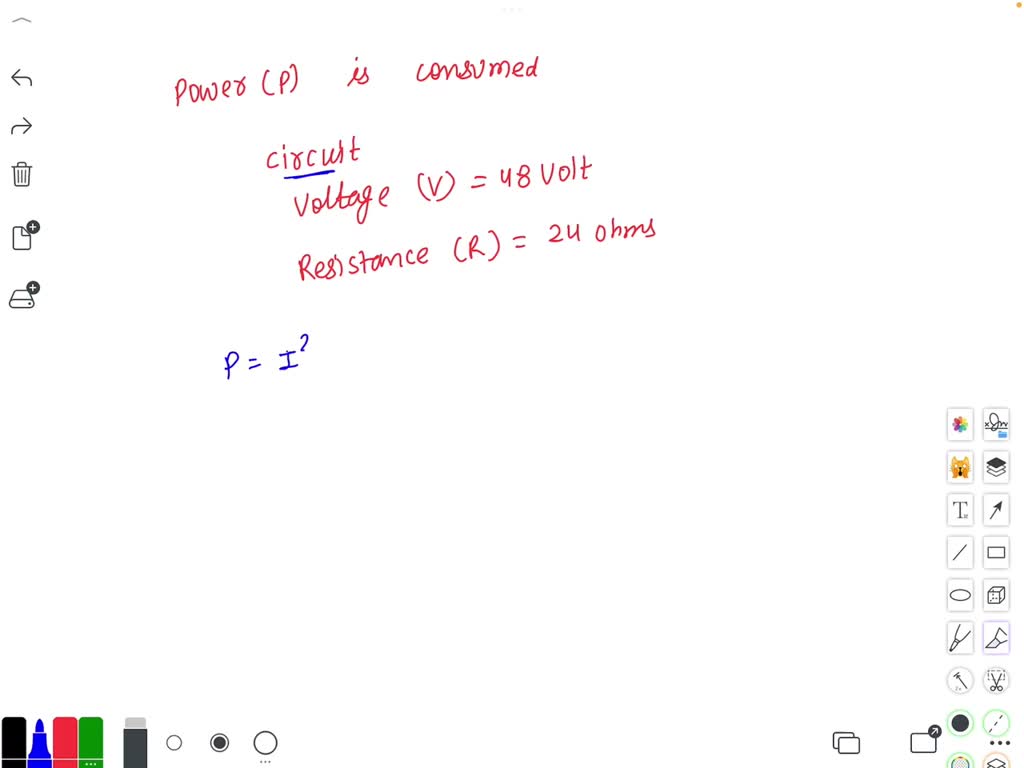 Power (P) is consumed
circuit
Voltage (V) = 48 Volt
Resistance (R) = 24 ohms
P = I²